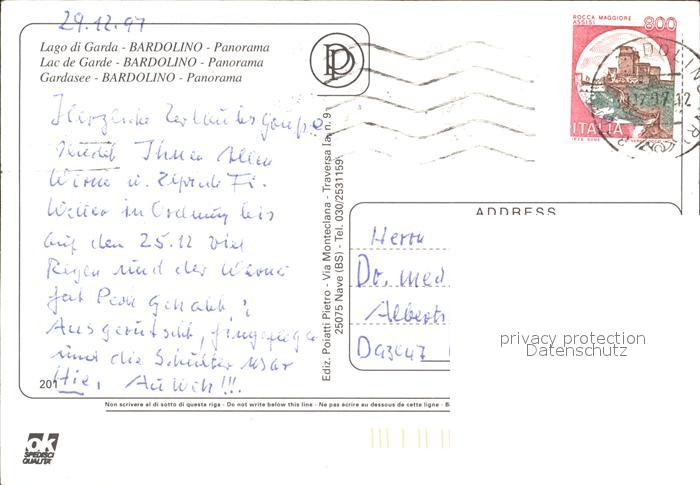 29.12.97
Lago di Garda - BARDOLINO - Panorama
Lac de Garde - BARDOLINO - Panorama
Gardasee - BARDOLINO - Panorama
Herzliche Urlaubsgrüße
Ihnen Allen
u.
Wetter in Ordnung bis
auf den 25.12 viel
Regen und der
hat Pech gehabt,
Ausgerutscht, hingeflogen
und die Schulter war
Hie, Au Weh!!!.
201
Ediz. Poiatti Pietro - Via Monteclana - Traversa Ia n. 9
25075 Nave (BS) - Tel. 030/2531159
ROCCA MAGGIORE
ASSISI
800
ITALIA
ADDRESS
Herrn
Dr. med
Alberts
privacy protection
Datenschutz
Non scrivere al di sotto di questa riga - Do not write below this line - Ne pas écrire au dessous de cette ligne - B
ok
SPEDISCI
QUALITÀ